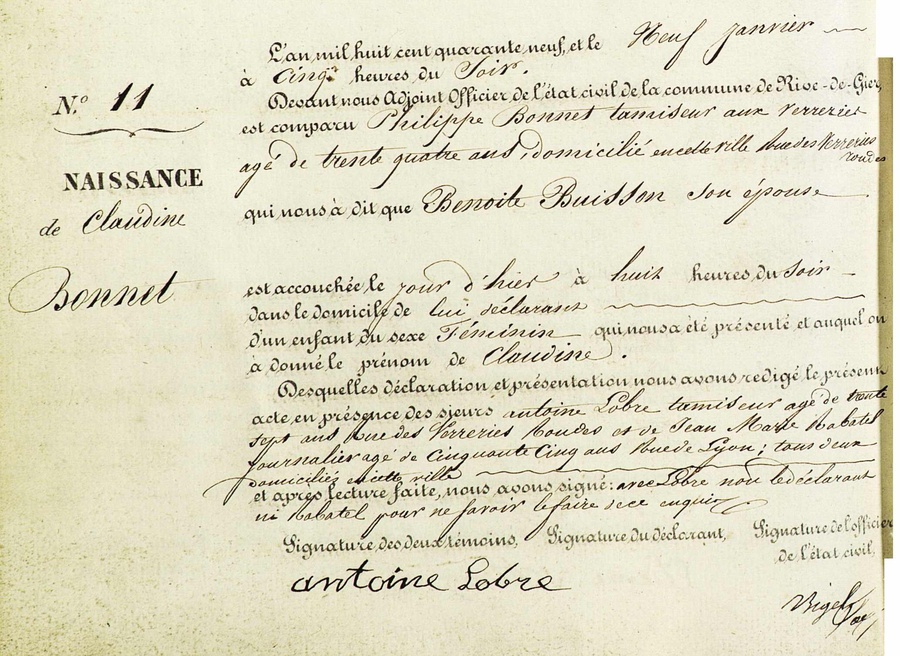 N.º 11
NAISSANCE
de Claudine
Bonnet
L'an mil huit cent quarante neuf, et le Neuf janvier
à Cinq heures du Soir.
Devant nous Adjoint Officier de l'état civil de la commune de Rive-de-Gier,
est comparu Philippe Bonnet tamiseur aux verreries
agé de trente quatre ans, domicilié en cette ville Rue des Verreries
rondes
qui nous à dit que Benoite Buisson son épouse
est accouchée le jour d'hier à huit heures du soir
dans le domicile de lui déclarant
d'un enfant du sexe Féminin qui nous a été présenté et auquel on
à donné le prénom de Claudine.
Desquelles déclaration et présentation nous avons redigé le présent
acte en présence des sieurs antoine Lobre tamiseur agé de trente
sept ans rue des Verreries Rondes et de Jean Marie Rabatel
journalier agé de Cinquante Cinq ans Rue de Lyon; tous deux
domiciliés en cette ville
et après lecture faite, nous avons signé: avec Lobre non le déclarant
ni Rabatel pour ne savoir le faire de ce enquis
Signature des deux témoins, Signature du déclarant, Signature de l'officier
de l'état civil,
antoine Lobre